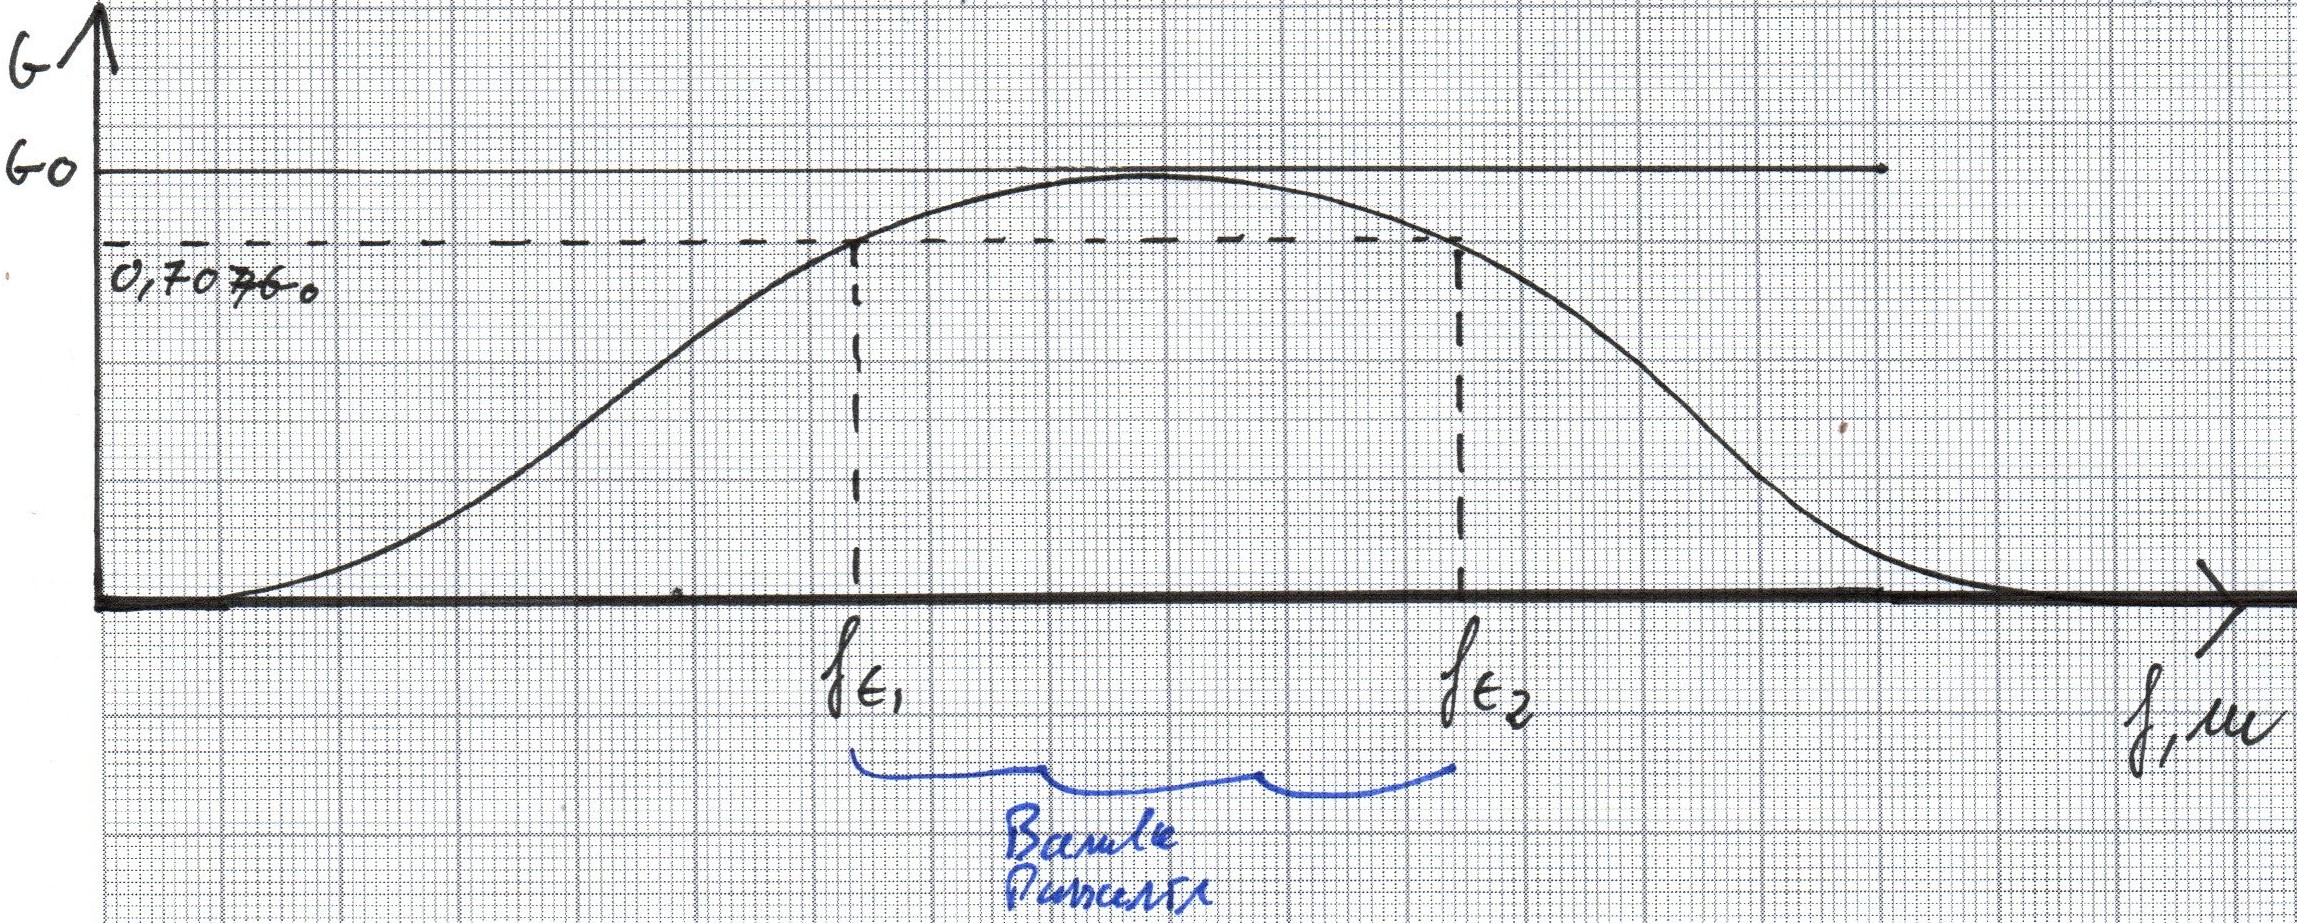 G
G0
0,707G0
fc1
fc2
f, w
Bande
Passante